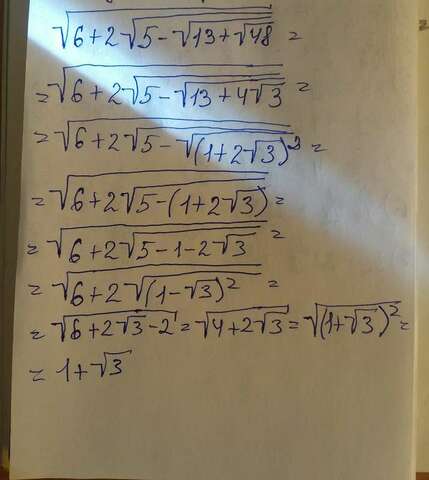 √(6+2√(5-√(13+√48))) =
= √(6+2√(5-√(13+4√3))) =
= √(6+2√(5-√((1+2√3)²))) =
= √(6+2√(5-(1+2√3))) =
= √(6+2√(5-1-2√3)) =
= √(6+2√((1-√3)²)) =
= √(6+2√3-2) = √(4+2√3) = √((1+√3)²) =
= 1+√3